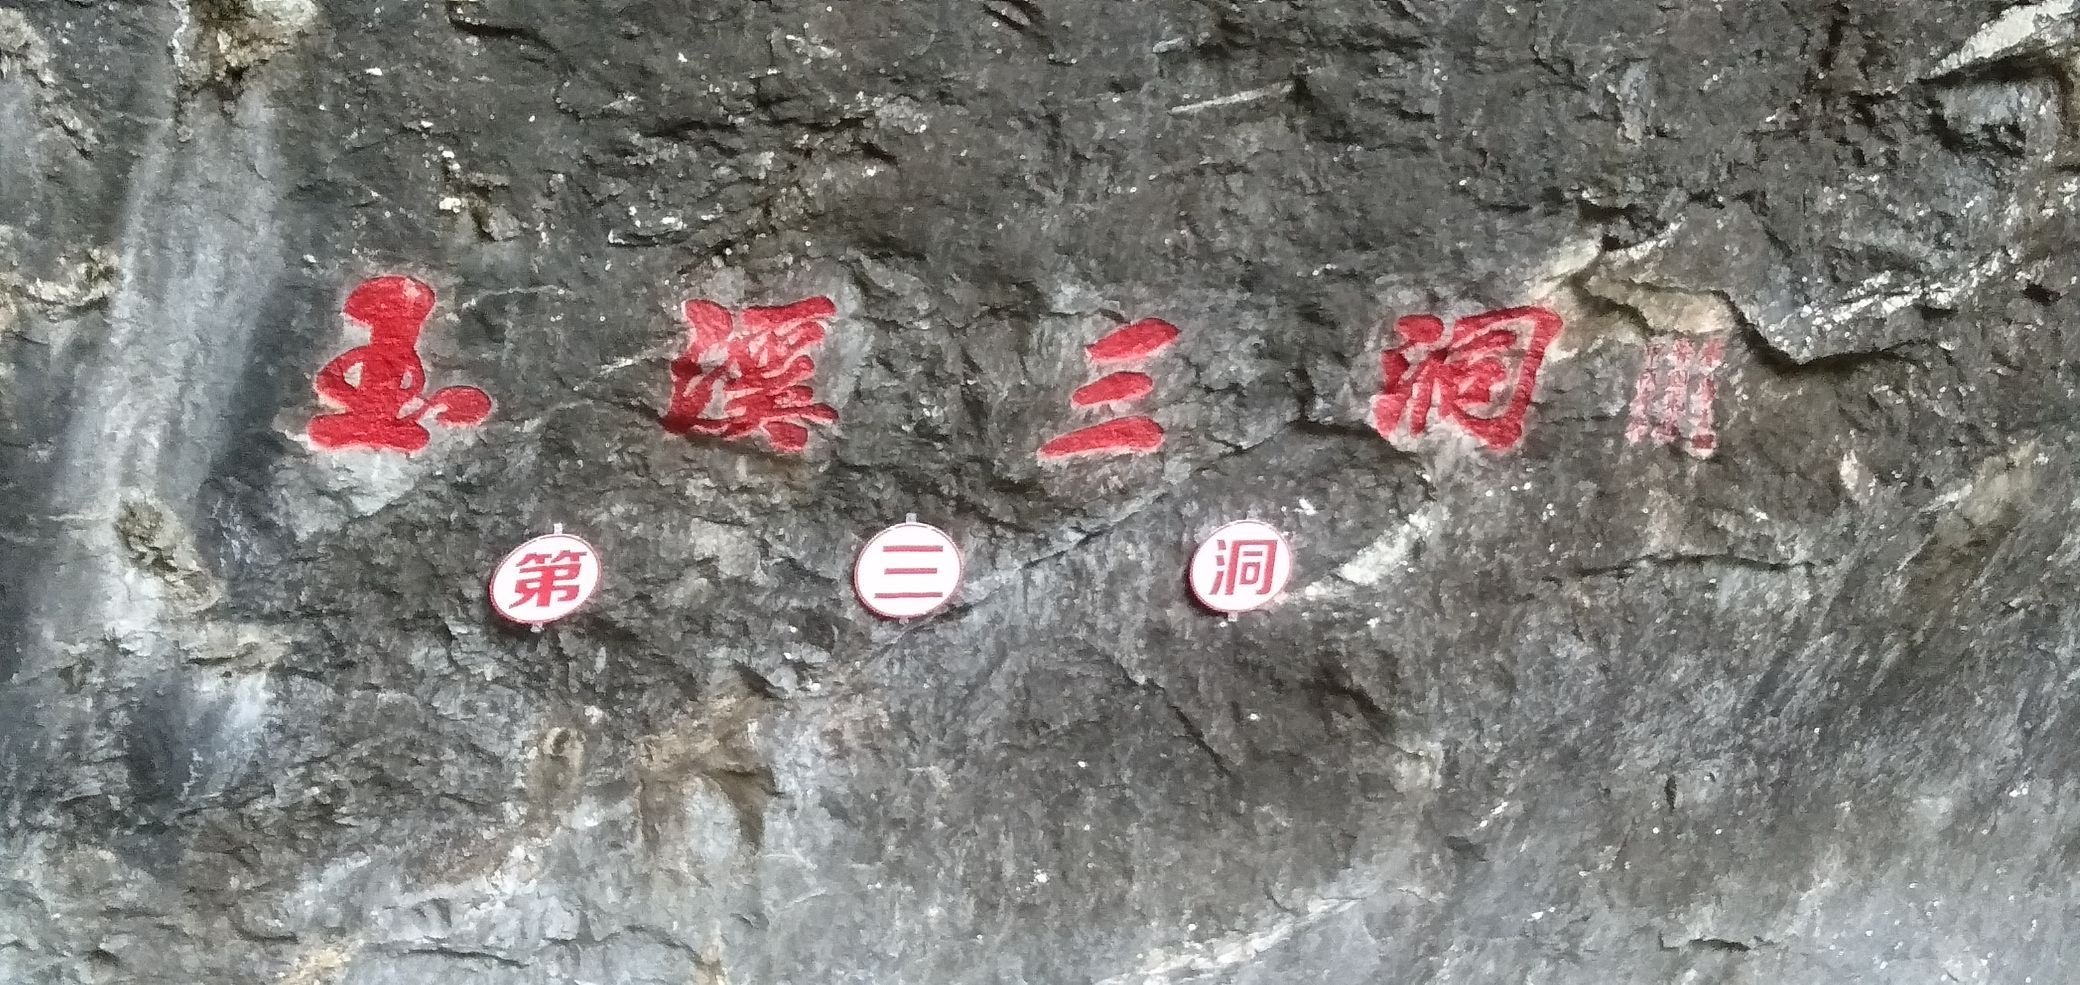 玉溪三洞
第三洞